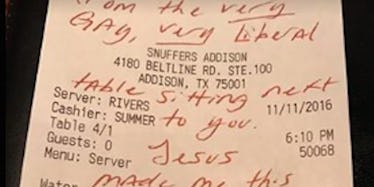 From the very
GAy, very Liberal
SNUFFERS ADDISON
4180 BELTLINE RD. STE.100
ADDISON, TX 75001
table sitting next
Server: RIVERS 11/11/2016
Cashier: SUMMER
to you.
Table 4/1 6:10 PM
Guests: 0 50068
Jesus
Menu: Server
made me this
Water